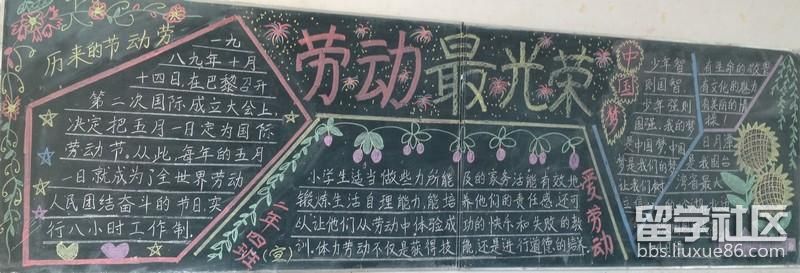 历来的节动劳
一九
八九年十月
十四日在巴黎召开
第二次国际成立大会上,
决定把五月一日定为国际
劳动节。从此,每年的五月
一日就成为了全世界劳动
人民团结奋斗的节日,实
行八小时工作制.
劳动最光荣
小学生适当做些力所能及的家务活能有效地
锻炼生活自理能力,能培养他们的责任感,还可
以让他们从劳动中体验成功的快乐和失败的教
训.体力劳动不仅是获得技能,还是进行道德的培养.
二年四班
(宣)
爱劳动
中国梦
少年智
则国智
少年强则
国强.我的梦
是中国梦.中国
梦是我们的梦
让我们
有生命的
有文化的魅力
有美丽的
日月潭
是我国台
湾省最大
留学社区
bbs.liuxue86.com